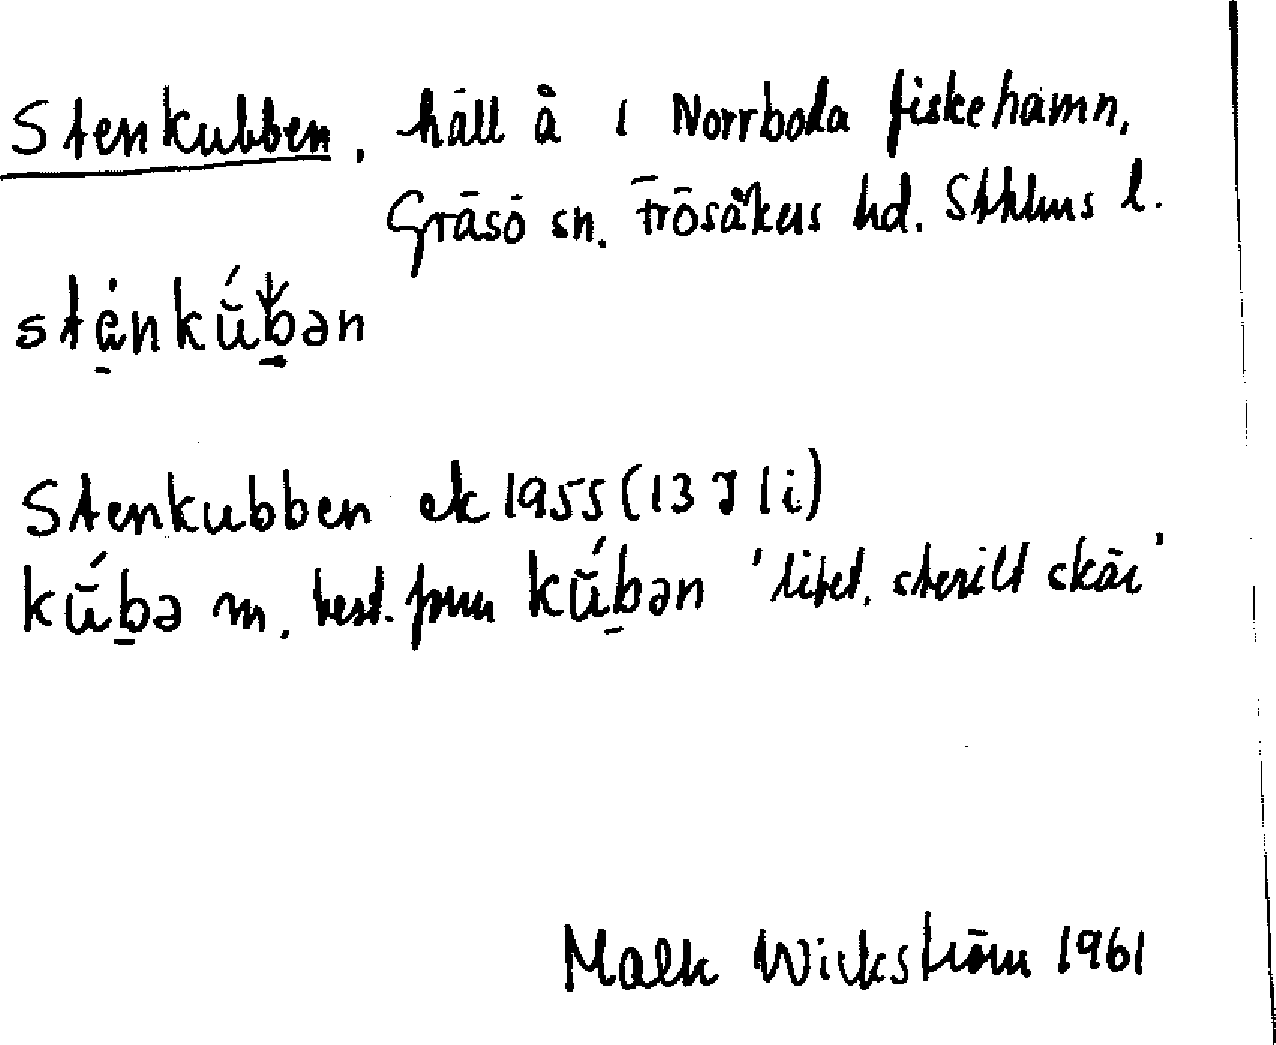 Stenkubben, häll å i Norrboda fiskehamn,
Gräsö sn. Frösåkers hd. Sthlms l.
stḙ̀nkŭ́b̠ən
Stenkubben ek 1955 (13 J 1 i)
kŭ́b̠ə m. best. form kŭ́b̠ən 'litet, sterilt skär'
Wickström 1961